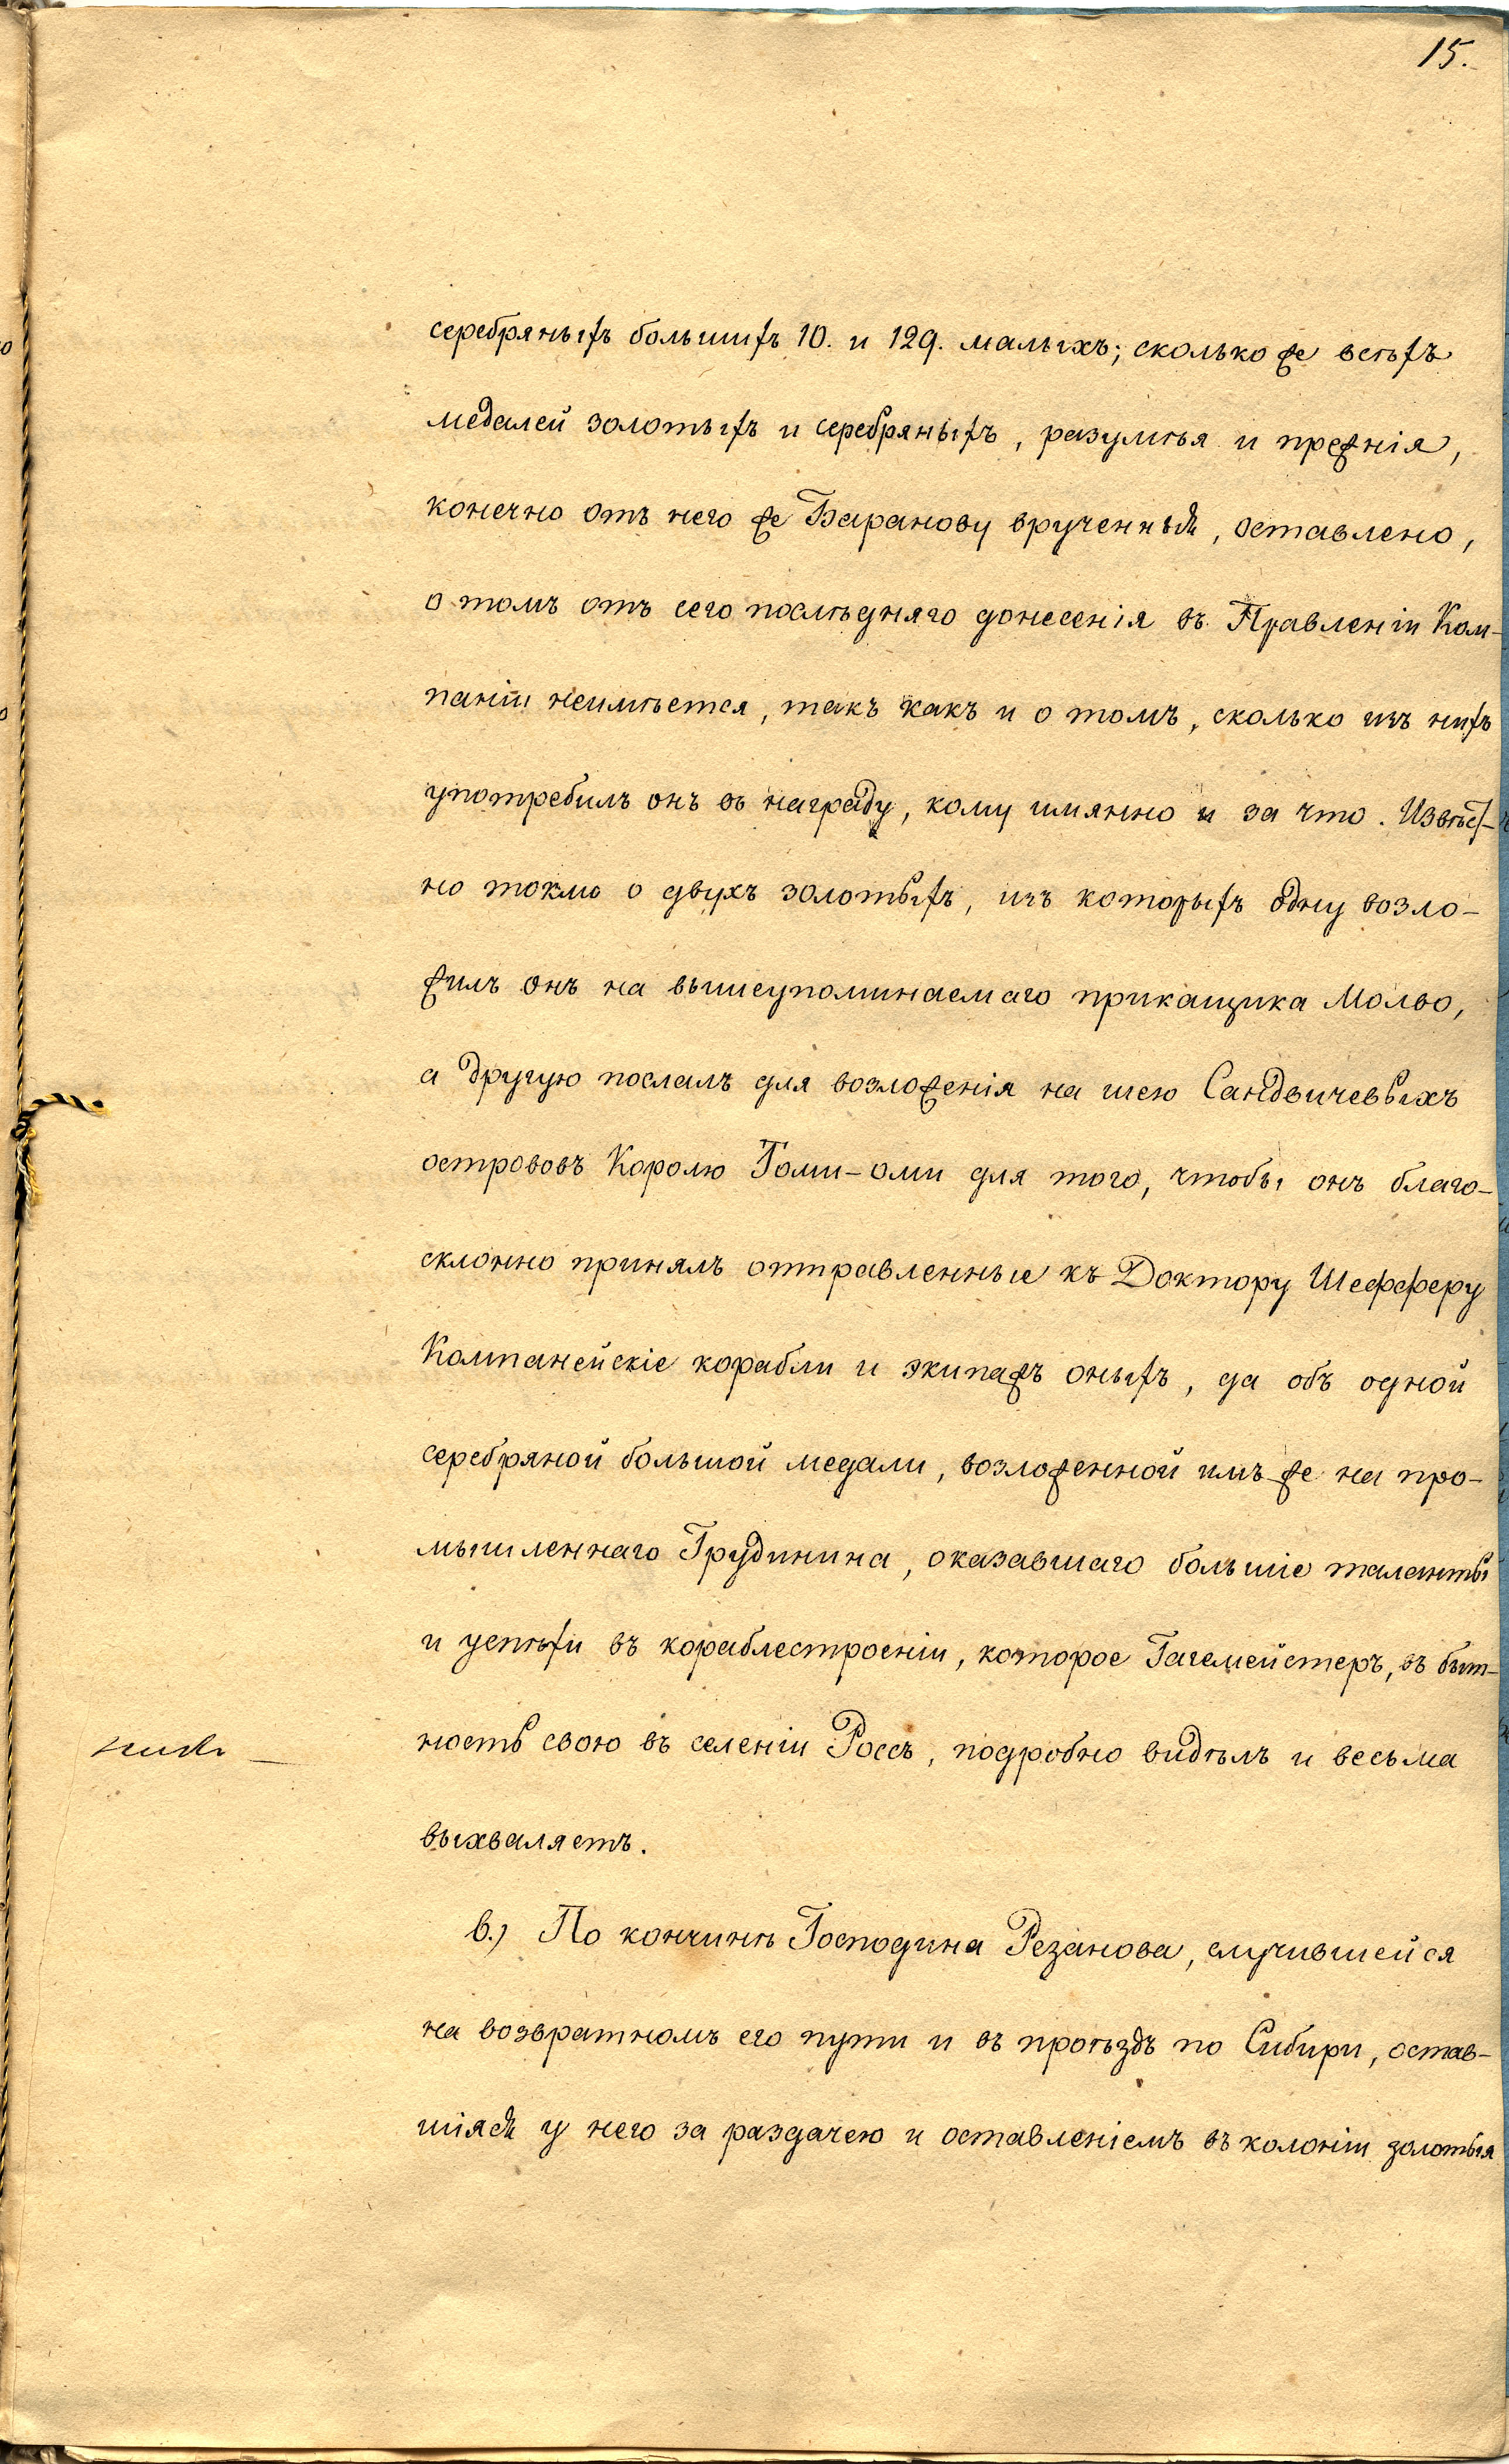 15.
серебряныхъ большихъ 10. и 129. малыхъ; сколько же всѣхъ
медалей золотыхъ и серебряныхъ, разумѣя и прежнія,
конечно отъ него же Баранову врученныя, оставлено,
о томъ отъ сего послѣдняго донесенія въ Правленіи Ком-
паніи неимѣется, такъ какъ и о томъ, сколько изъ нихъ
употребилъ онъ въ награду, кому имянно и за что. Извѣст-
но токмо о двухъ золотыхъ, изъ которыхъ одну возло-
жилъ онъ на вышеупоминаемаго прикащика Молво,
а другую послалъ для возложенія на шею Сандвичевыхъ
острововъ Королю Томи-оми для того, чтобы онъ благо-
склонно принялъ отправленные къ Доктору Шефферу
Компанейскіе корабли и экипажъ оныхъ, да объ одной
серебряной большой медали, возложенной имъ же на про-
мышленнаго Грудинина, оказавшаго большіе таланты
и успѣхи въ кораблестроеніи, которое Гагемейстеръ, въ быт-
ность свою въ селеніи Россъ, подробно видѣлъ и весьма
выхваляетъ.
в.) По кончинѣ Господина Резанова, случившейся
на возвратномъ его пути и въ проѣздъ по Сибири, остав-
шіяся у него за раздачею и оставленіемъ въ колоніи золотыя